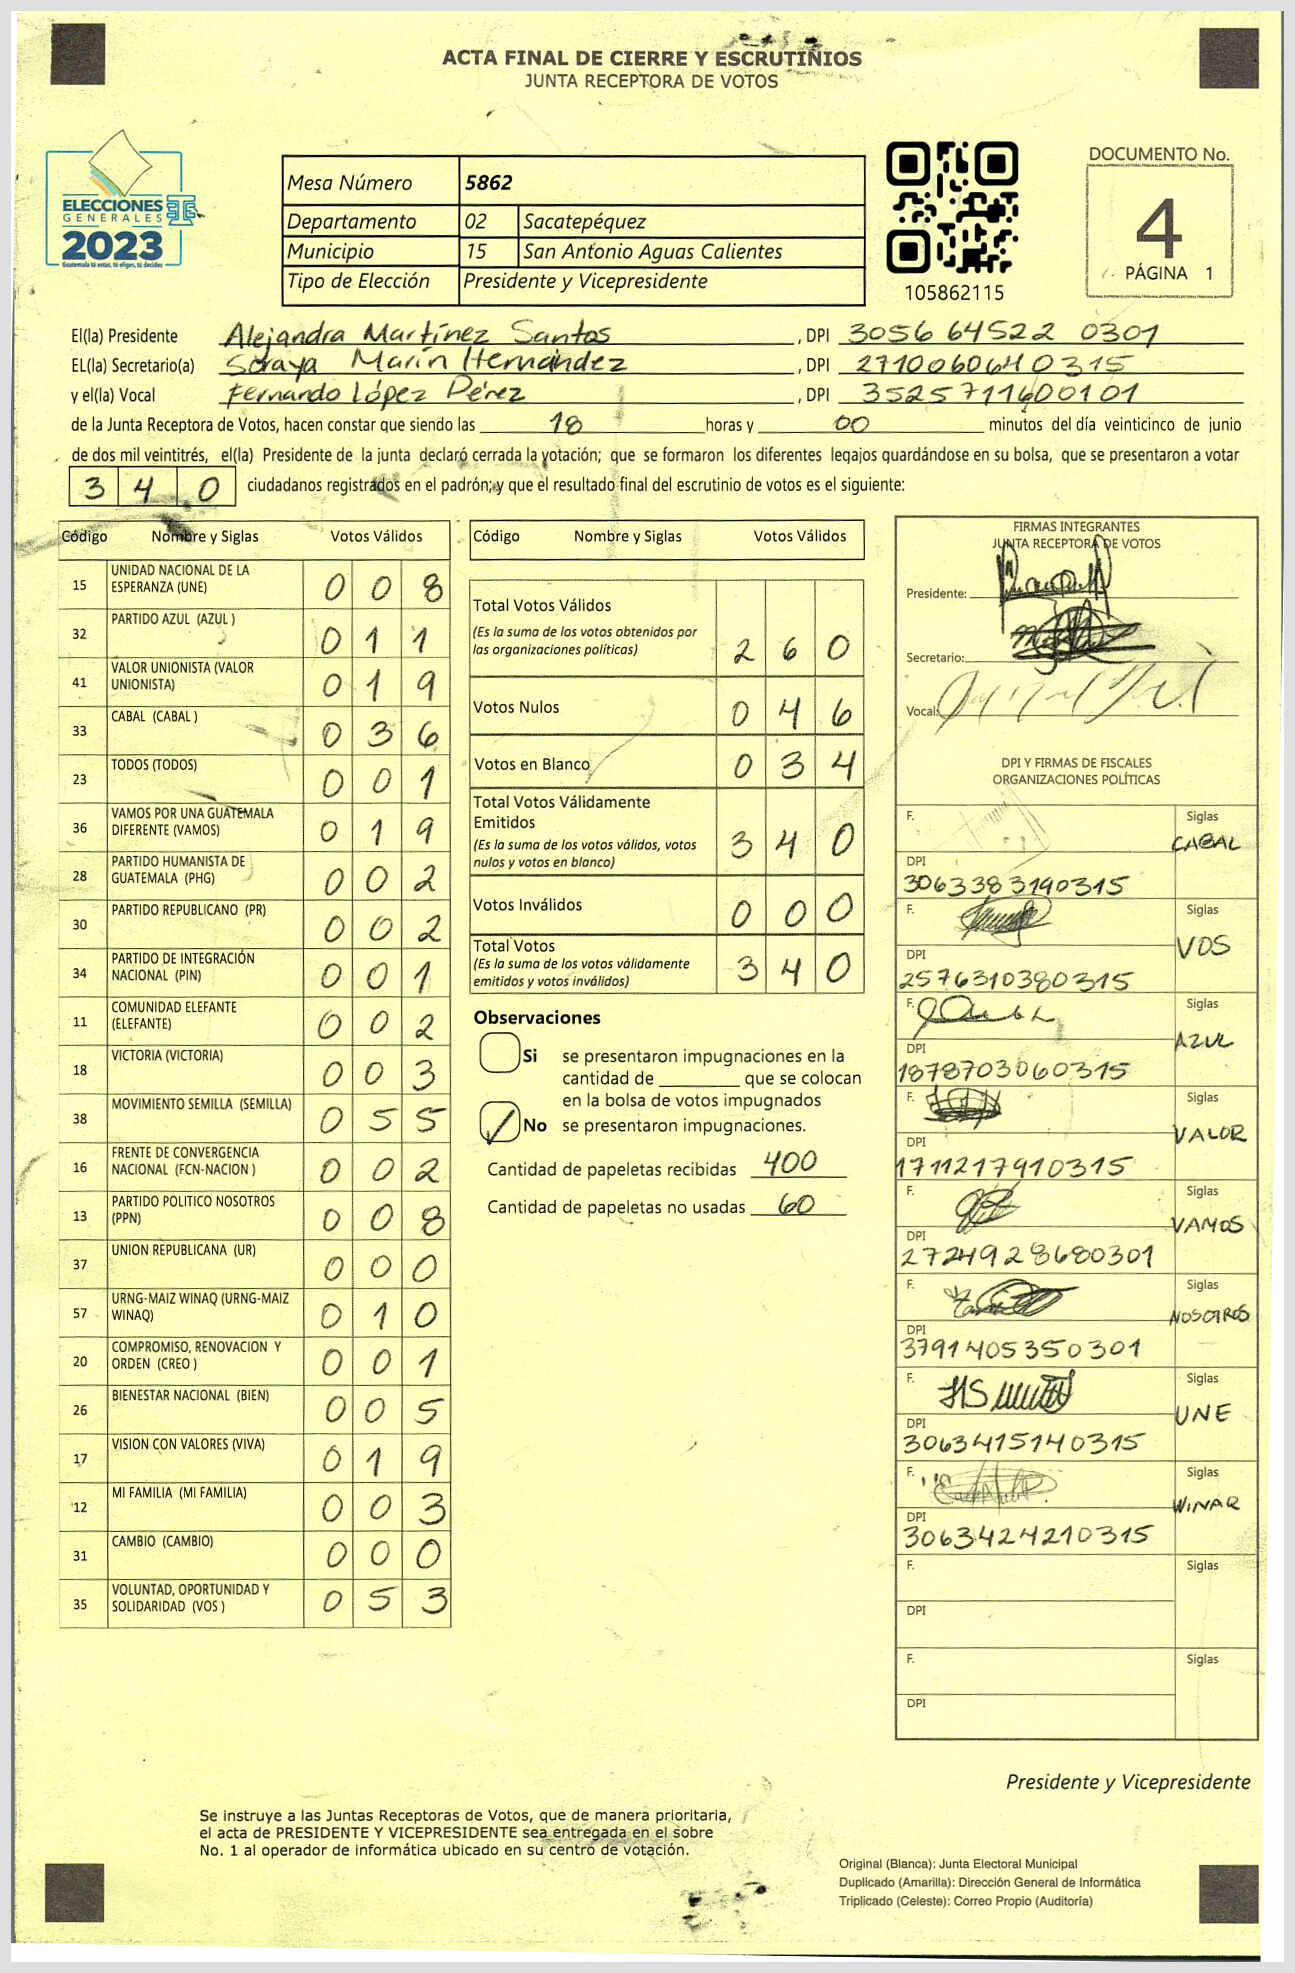 ACTA FINAL DE CIERRE Y ESCRUTINIOS
JUNTA RECEPTORA DE VOTOS
ELECCIONES
GENERALES
2023
Guatemala tú estas, tú eliges, tú decides
Mesa Número 5862
Departamento 02 Sacatepéquez
Municipio 15 San Antonio Aguas Calientes
Tipo de Elección Presidente y Vicepresidente
105862115
DOCUMENTO No.
4
PÁGINA 1
El(la) Presidente Alejandra Martínez Santos, DPI 3056 64522 0301
EL(la) Secretario(a) Soraya Marín Hernández, DPI 2710060640315
y el(la) Vocal Fernando López Pérez, DPI 3525711600101
de la Junta Receptora de Votos, hacen constar que siendo las 18 horas y 00 minutos del día veinticinco de junio
de dos mil veintitrés, el(la) Presidente de la junta declaró cerrada la votación; que se formaron los diferentes legajos guardándose en su bolsa, que se presentaron a votar
3 4 0 ciudadanos registrados en el padrón; y que el resultado final del escrutinio de votos es el siguiente:
Código Nombre y Siglas Votos Válidos
15 UNIDAD NACIONAL DE LA ESPERANZA (UNE) 0 0 8
32 PARTIDO AZUL (AZUL ) 0 1 1
41 VALOR UNIONISTA (VALOR UNIONISTA) 0 1 9
33 CABAL (CABAL ) 0 3 6
23 TODOS (TODOS) 0 0 1
36 VAMOS POR UNA GUATEMALA DIFERENTE (VAMOS) 0 1 9
28 PARTIDO HUMANISTA DE GUATEMALA (PHG) 0 0 2
30 PARTIDO REPUBLICANO (PR) 0 0 2
34 PARTIDO DE INTEGRACIÓN NACIONAL (PIN) 0 0 1
11 COMUNIDAD ELEFANTE (ELEFANTE) 0 0 2
18 VICTORIA (VICTORIA) 0 0 3
38 MOVIMIENTO SEMILLA (SEMILLA) 0 5 5
16 FRENTE DE CONVERGENCIA NACIONAL (FCN-NACION ) 0 0 2
13 PARTIDO POLITICO NOSOTROS (PPN) 0 0 8
37 UNION REPUBLICANA (UR) 0 0 0
57 URNG-MAIZ WINAQ (URNG-MAIZ WINAQ) 0 1 0
20 COMPROMISO, RENOVACION Y ORDEN (CREO ) 0 0 1
26 BIENESTAR NACIONAL (BIEN) 0 0 5
17 VISION CON VALORES (VIVA) 0 1 9
12 MI FAMILIA (MI FAMILIA) 0 0 3
31 CAMBIO (CAMBIO) 0 0 0
35 VOLUNTAD, OPORTUNIDAD Y SOLIDARIDAD (VOS ) 0 5 3
Código Nombre y Siglas Votos Válidos
Total Votos Válidos
(Es la suma de los votos obtenidos por
las organizaciones políticas) 2 6 0
Votos Nulos 0 4 6
Votos en Blanco 0 3 4
Total Votos Válidamente
Emitidos
(Es la suma de los votos válidos, votos
nulos y votos en blanco) 3 4 0
Votos Inválidos 0 0 0
Total Votos
(Es la suma de los votos válidamente
emitidos y votos inválidos) 3 4 0
Observaciones
Si se presentaron impugnaciones en la
cantidad de ________ que se colocan
en la bolsa de votos impugnados
No se presentaron impugnaciones.
Cantidad de papeletas recibidas 400
Cantidad de papeletas no usadas 60
FIRMAS INTEGRANTES
JUNTA RECEPTORA DE VOTOS
Presidente:
Secretario:
Vocal:
DPI Y FIRMAS DE FISCALES
ORGANIZACIONES POLÍTICAS
F. Siglas
CABAL
DPI
3063383190315
F. Siglas
VOS
DPI
2576310380315
F. Siglas
AZUL
DPI
1878703060315
F. Siglas
VALOR
DPI
1711217910315
F. Siglas
VAMOS
DPI
2724928680301
F. Siglas
NOSOTROS
DPI
3791405350301
F. Siglas
UNE
DPI
3063415140315
F. Siglas
WINAQ
DPI
3063424210315
F. Siglas
DPI
F. Siglas
DPI
Presidente y Vicepresidente
Se instruye a las Juntas Receptoras de Votos, que de manera prioritaria,
el acta de PRESIDENTE Y VICEPRESIDENTE sea entregada en el sobre
No. 1 al operador de informática ubicado en su centro de votación.
Original (Blanca): Junta Electoral Municipal
Duplicado (Amarilla): Dirección General de Informática
Triplicado (Celeste): Correo Propio (Auditoría)